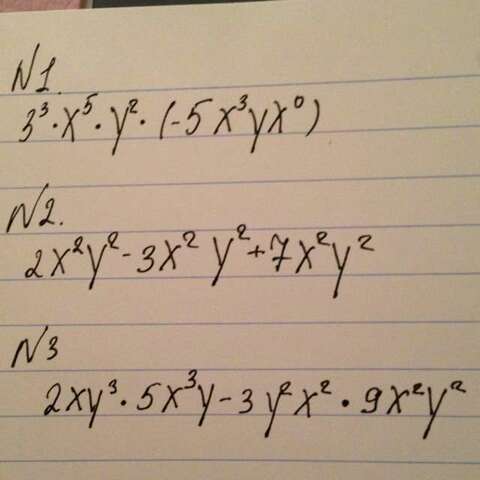 N1.
3³·x⁵·y²·(-5x³yx⁰)
N2.
2x²y²-3x²y²+7x²y²
N3
2xy³·5x³y-3y²x²·9x²y²